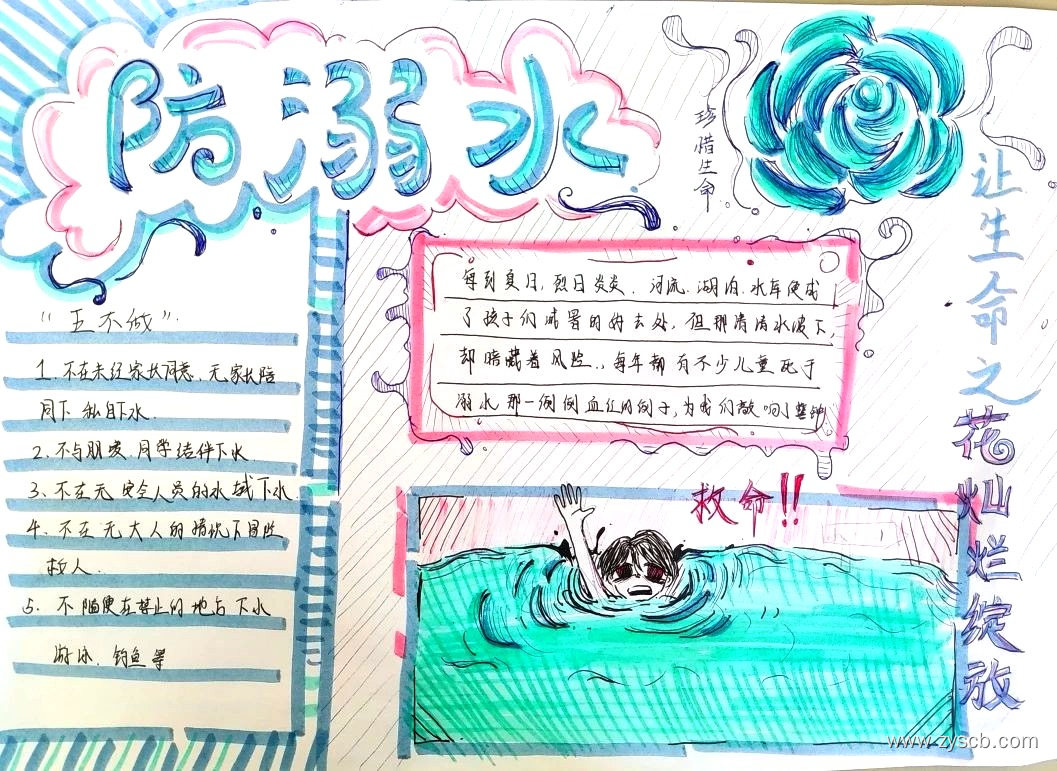 防溺水
珍惜生命
让生命之花灿烂绽放
“五不做”
1. 不在未经家长同意、无家长陪
同下私自下水.
2. 不与朋友、同学结伴下水.
3. 不在无安全人员的水域下水
4. 不在无大人的情况下冒险
救人.
5. 不随便在禁止的地方下水
游泳、钓鱼等
每到夏日, 烈日炎炎. 河流. 湖泊. 水库便成
了孩子们减暑的好去处, 但那清清水波下,
却暗藏着风险., 每年都有不少儿童死于
溺水 那一例例血红的例子, 为我们敲响了警钟
救命!!
www.zyscb.com